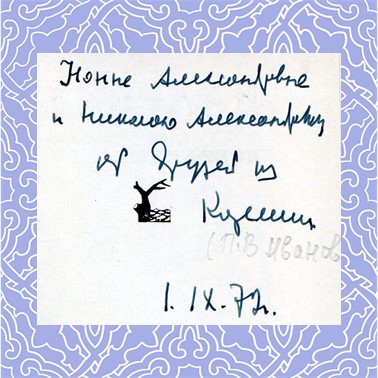 Нонне Александровне
и Николаю Александровичу
от друзей из
Карелии
(П.В Иванов
1. IX. 72г.